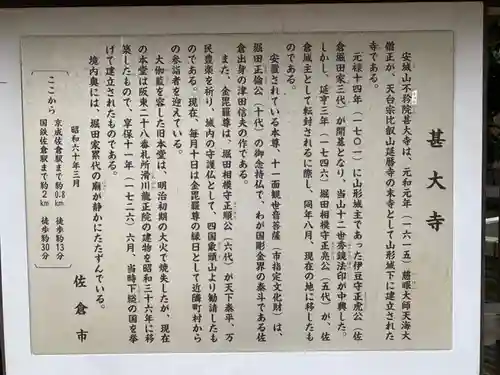 甚大寺
安城山不矜院甚大寺は、元和元年(一六一五)慈眼大師天海大
僧正が、天台宗比叡山延暦寺の末寺として山形城下に建立された
寺である。
元禄十四年(一七〇一)に山形城主であった伊豆守正虎公(佐
倉堀田家三代)が開基となり、当山十二世秀鏡法印が中興した。
しかし、延亨三年(一七四六)堀田相模守正亮公(五代)が、佐
倉城主として転封されるに際し、同年八月、現在の地に移したも
のである。
安置されている本尊、十一面観世音菩薩(市指定文化財)は、
堀田正倫公(十代)の御念持仏で、わが国彫金界の泰斗である佐
倉出身の津田信夫の作である。
また、金毘羅尊は、堀田相模守正順公(六代)が天下泰平、万
民豊楽を祈り、城内の守護仏として、四国象頭山より勧請したも
のである。現在、毎月十日は金毘羅尊の縁日として近隣町村から
の参詣者を迎えている。
大伽藍を容した旧本堂は、明治初期の大火で焼失したが、現在
の本堂は坂東二十八番札所滑川龍正院の建物を昭和三十六年に移
築したもので、享保十一年(一七二六)六月、当時下総の国を挙
げて建立されたものである。
境内奥には、堀田家累代の廟が静かにたたずんでいる。
昭和六十年三月
佐倉市
ここから
京成佐倉駅まで約0.8km 徒歩約13分
国鉄佐倉駅まで約2km 徒歩約30分